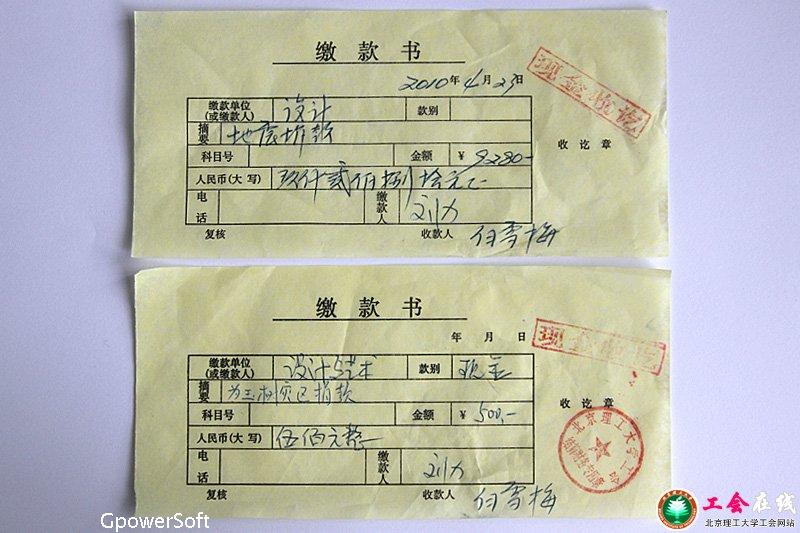 缴款书
2010年4月23日
现金收讫
缴款单位(或缴款人) 设计 款别
摘要 地震捐款
收讫章
科目号 金额 ¥ 9280-
人民币(大写) 玖仟贰佰捌拾元正
电话 缴款人 刘力
复核 收款人 付雪梅
缴款书
年 月 日
现金收讫
缴款单位(或缴款人) 设计与艺术 款别 现金
摘要 为玉树灾区捐款
收讫章
科目号 金额 ¥ 500.-
人民币(大写) 伍佰元整
北京理工大学工会
电话 缴款人 刘力
复核 收款人 付雪梅
GpowerSoft
工会在线
北京理工大学工会网站